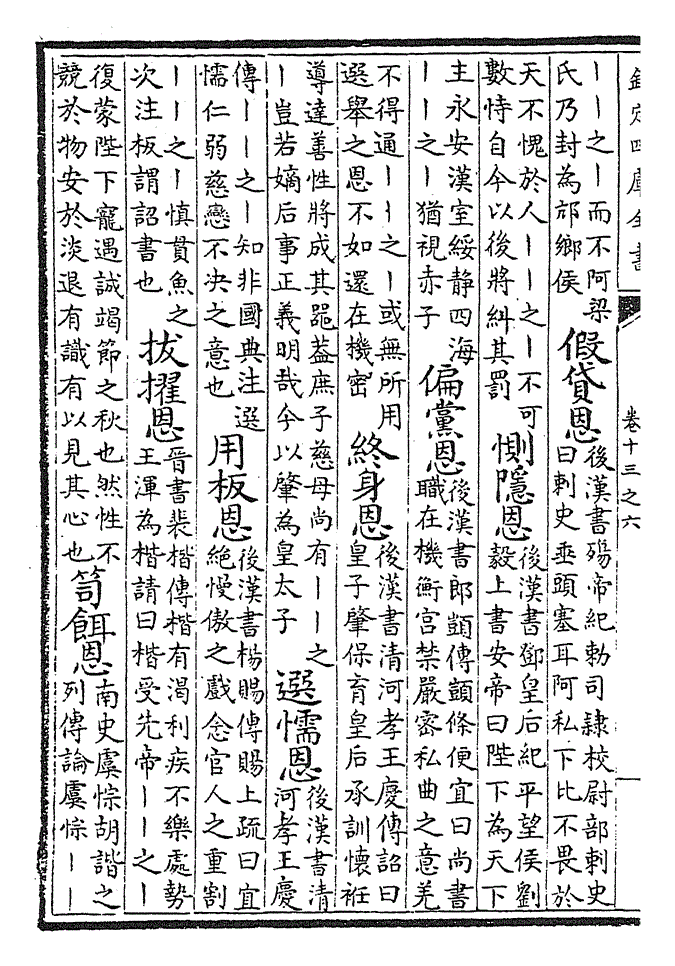 欽定四庫全書
卷十三之六
丨丨之丨而不阿梁
氏乃封為邟鄉侯
假貸恩
後漢書殤帝紀勅司隷校尉部刺史
曰刺史垂頭塞耳阿私下比不畏於
天不愧於人丨丨之丨不可
數恃自今以後將糾其罰
惻隱恩
後漢書鄧皇后紀平望侯劉
毅上書安帝曰陛下為天下
主永安漢室綏静四海
丨丨之丨猶視赤子
偏黨恩
後漢書郎顗傳顗條便宜曰尚書
職在機衡宫禁嚴密私曲之意羌
不得通丨丨之丨或無所用
選舉之恩不如還在機密
終身恩
後漢書清河孝王慶傳詔曰
皇子肇保育皇后承訓懷袵
導達善性將成其器葢庶子慈母尚有丨丨之
丨豈若嫡后事正義明哉今以肇為皇太子
選懦恩
後漢書清
河孝王慶
傳丨丨之丨知非國典注選
懦仁弱慈戀不决之意也
用板恩
後漢書楊賜傳賜上疏曰宜
絶慢傲之戲念官人之重割
丨丨之丨慎貫魚之
次注板謂詔書也
拔擢恩
晉書裴楷傳楷有渴利疾不樂處勢
王渾為楷請曰楷受先帝丨丨之丨
復蒙陛下寵遇誠竭節之秋也然性不
競於物安於淡退有識有以見其心也
笥餌恩
南史虞悰胡諧之
列傳論虞悰丨丨